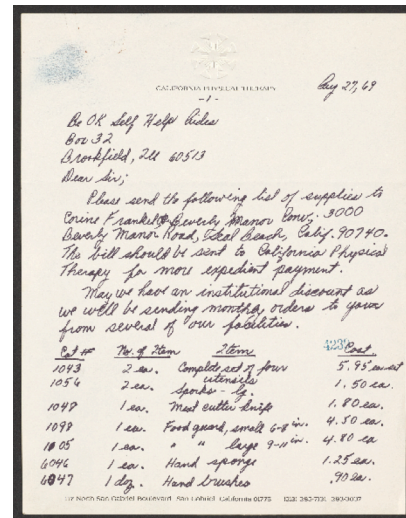 CALIFORNIA PHYSICAL THERAPY
-1-
Aug 27, 69
Be OK Self Help Aides
Box 32
Brookfield, Ill 60513
Dear Sir;
Please send the following list of supplies to
Corine Frankel @ Beverly Manor Conv., 3000
Beverly Manor Road, Seal Beach, Calif. 90740.
The bill should be sent to California Physical
Therapy for more expedient payment.
May we have an institutional discount as
we will be sending monthly orders to you
from several of our facilities.
Cat # No. of Item Item 4232 Cost
1043 2 ea. Complete set of four utensils 5.95 ea set
1056 2 ea. sporks - lg. 1.50 ea.
1048 1 ea. Meat cutter knife 1.80 ea.
1098 1 ea. Food guard, small 6-8 in. 4.50 ea.
1005 1 ea. " " large 9-11 in. 4.80 ea
6046 1 ea. Hand sponge 1.25 ea.
6047 1 doz. Hand brushes .90 ea.
North San Gabriel Boulevard San Gabriel California 01775